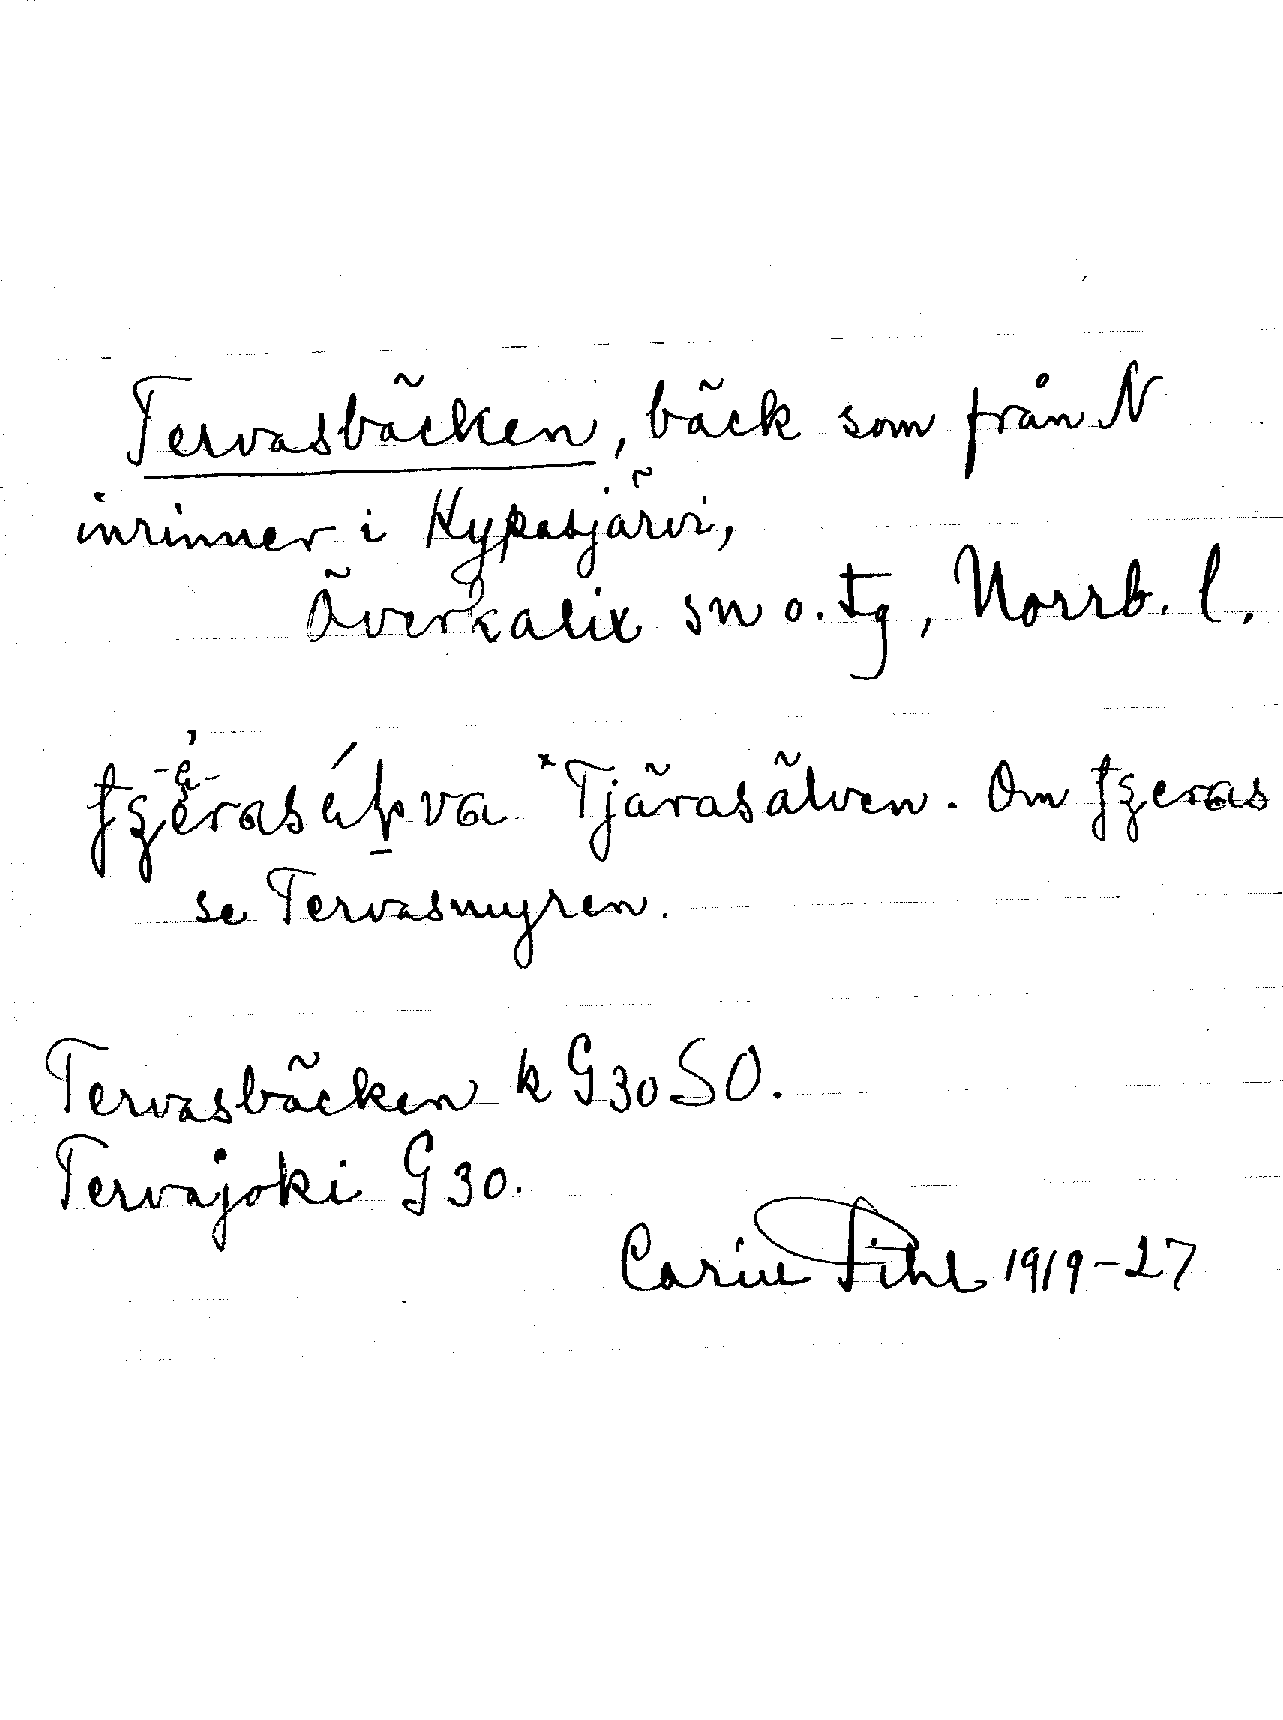 Tervasbäcken, bäck som från N
inrinner i Hypasjärvi,
Överkalix sn o. tg, Norrb. l.
*Tjärasälven. Om
se Tervasmyren.
Tervasbäcken k G30SO.
Tervajoki G30.
Carin Pihl 1919-27